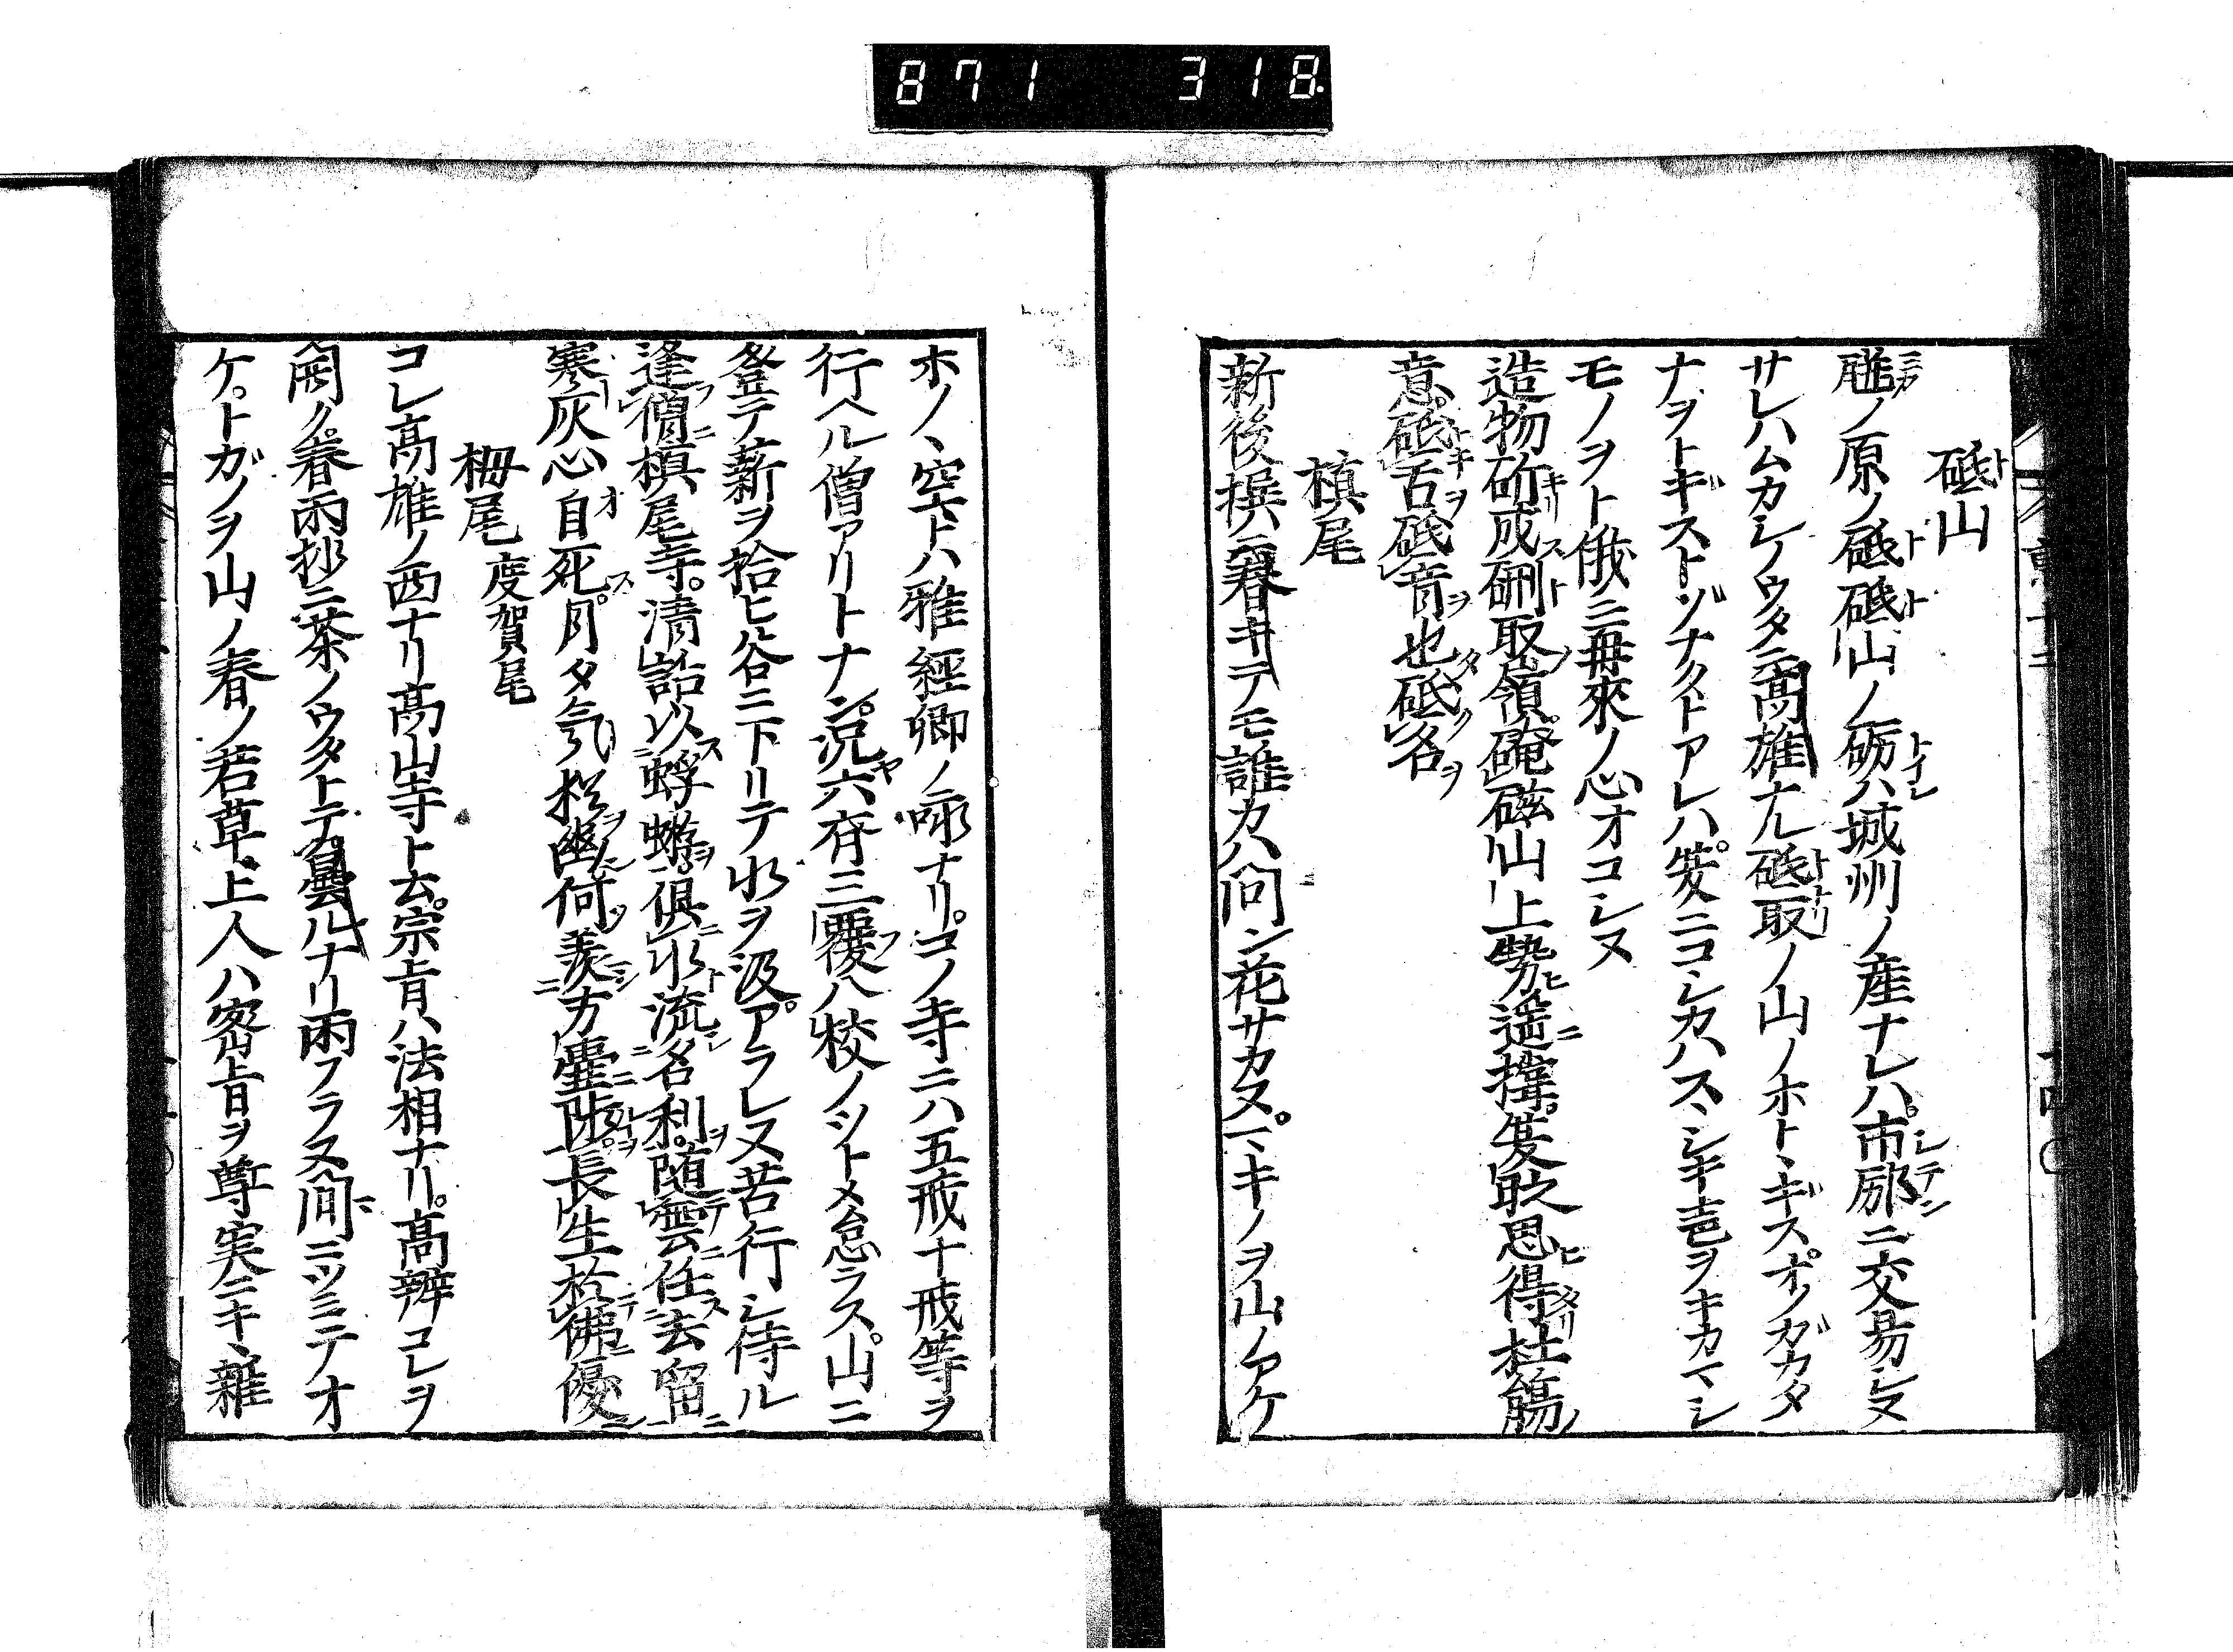 871 318
砥山
磑ノ原ノ砥砥山ノ砺ハ城州ノ産ナレハ市廓ニ交易シヌ
サレハムカシノウタニ高雄ナル砥取ノ山ノホトヽギスオノガカタ
ナヲトギストゾナクトアレハ爰ニコシカハスヽシキ壱ヲキカマシ
モノヲト俄ニ再來ノ心オコシヌ
造物斫成硎取嶺 磁山上勢遥 爰 思得杜鵑
意砥舌砥音也砥名
槙尾
新後撰ニ春キテモ誰カハ問ン花サカヌマキノヲ山ノアケ
ホノヽ空トハ雅經卿ノ咏ナリコノ寺ニハ五戒十戒等ヲ
行ヘル僧アリトナン况六府三覆八校ノツトメ怠ラス山ニ
登テ薪ヲ拾ヒ谷ニ下リテ水ヲ汲アラレヌ苦行シ侍ル
逢僧槙尾寺清話以蜉蝣俱水流名利随雲任去留
寒灰心自死月夕気 幽何羨方壷 長生於佛優
栂尾 度賀尾
コレ高雄ノ西ナリ高山寺ト云宗旨ハ法相ナリ高辨コレヲ
開ク春雨抄ニ茶ノウタトテ曇ルナリ雨フラヌ間ニツミテオ
ケトガノヲ山ノ春ノ若草上人ハ密旨ヲ尊実ニキヽ雜